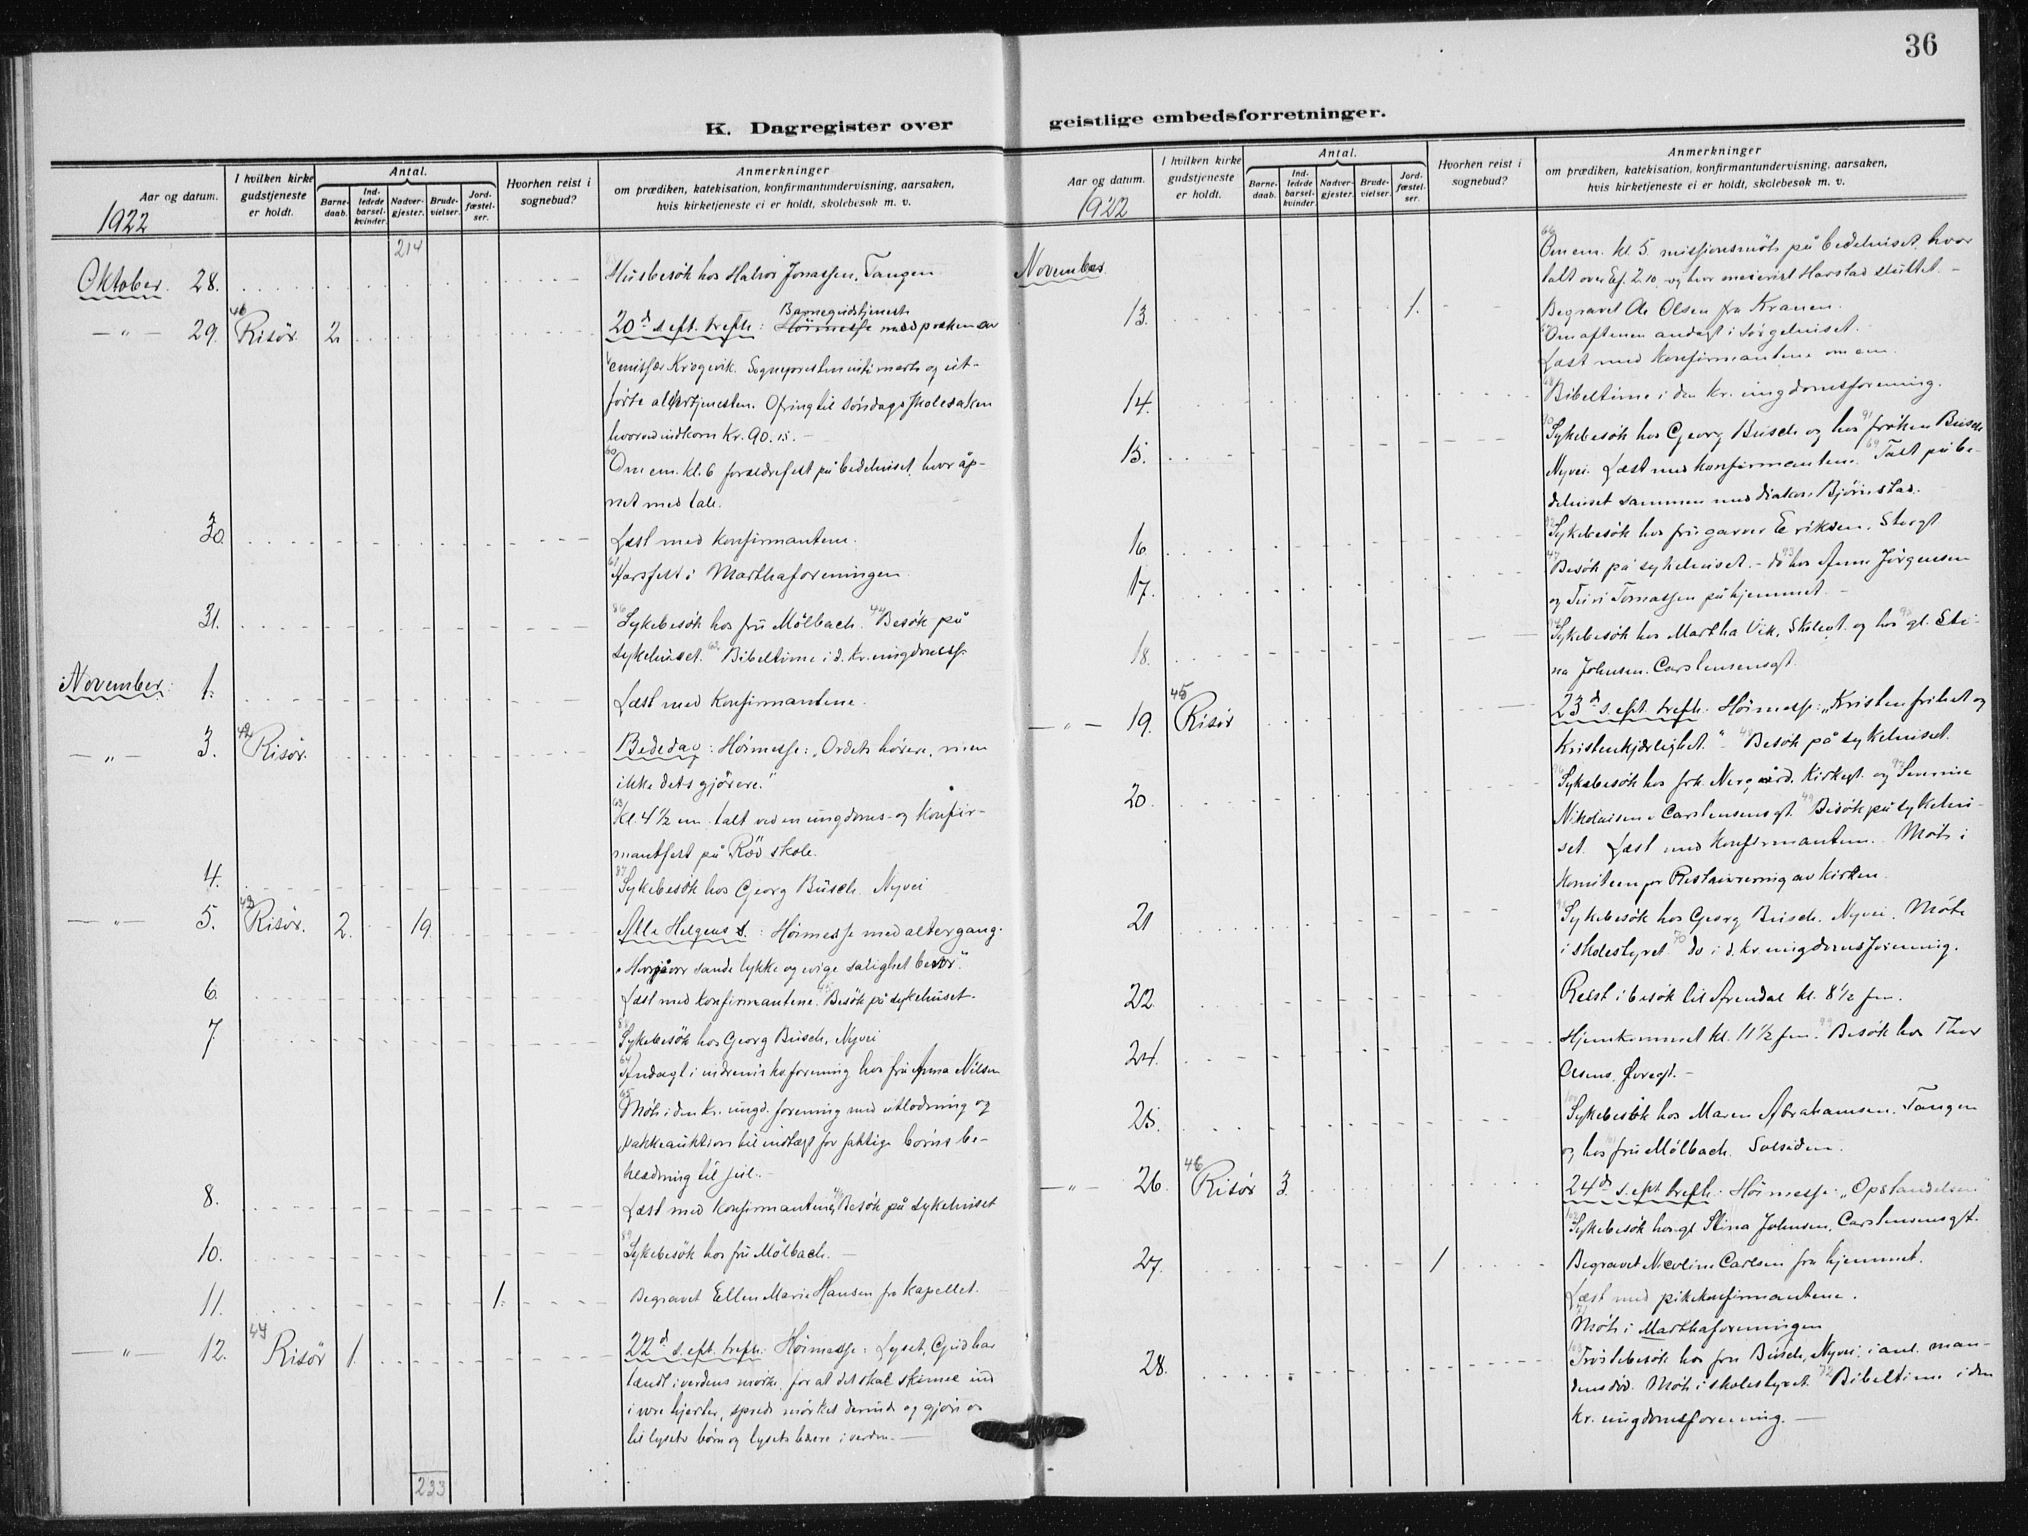 36
K. Dagregister over
Aar og datum.
I hvilken kirke gudstjeneste er holdt.
Antal.
Barnedaab.
Indledede barselkvinder.
Nadvergjester.
Brudevielser.
Jordfæstelser.
Hvorhen reist i sognebud?
Anmerkninger
om prædiken, katekisation, konfirmantundervisning, aarsaken,
hvis kirketjeneste ei er holdt, skolebesøk m. v.
1922
214
Oktober 28. Husbesök hos Halvor Jonassen, Tangen
Barnegudstjeneste
— " — 29. Risör. 2. 20d s. eft. trefh: Höimesse med præken av
emissær Krogevik. Sognepresten intimerte og ut-
förte altertjenesten. Ofring til söndagsskolesaken
hvorved indkom Kr. 90.15. —
60 Om em. kl. 6 foreldrefest på bedehuset hvor åp-
net med tale.
30. Læst med konfirmantene.
61 Aarsfest i Marthaforeningen.
31. 86 Sykebesök hos fru Mölbach. 44 Besök på
sykehuset. 62 Bibeltime i d. kr. ungdomsf.
November: 1. Læst med konfirmantene.
— " — 3. 42 Risör. Bededag: Höimesse: „Ordets hörere, men
ikke dets gjörere."
63 Kl. 4½ em. talt ved en ungdoms- og konfir-
mantfest på Röd skole.
4. 87 Sykebesök hos Georg Büsch. Nyvei
— " — 5. 43 Risör. 2. 19 Alle Helgens s.: Höimesse med altergang.
sande lykke og evige salighet
6. Læst med konfirmantene. 45 Besök på sykehuset.
7. 88 Sykebesök hos Georg Büsch, Nyvei
64 Andagt i indremisksforening hos fru Anna Nilsen
65 Möte i den kr. ungd. forening med utlodning og
pakkeauktion til indtægt for fattige börns be-
klædning til jul. —
8. Læst med konfirmantene, 46 Besök på sykehuset
10. 89 Sykebesök hos fru Mölbach. —
11. 1. Begravet Ellen Marie Hansen fra kapellet.
— " — 12. 44 Risör 1. 22d s. eft. trefh: Höimesse: Lyset, Gud har
tændt i verdens mörke, for at det skal skinne ind
i vore hjerter, sprede mörket derinde og gjöre os
til lysets börn og lysets bærere i verden. —
233
geistlige embedsforretninger.
Aar og datum.
I hvilken kirke gudstjeneste er holdt.
Antal.
Barnedaab.
Indledede barselkvinder.
Nadvergjester.
Brudevielser.
Jordfæstelser.
Hvorhen reist i sognebud?
Anmerkninger
om prædiken, katekisation, konfirmantundervisning, aarsaken,
hvis kirketjeneste ei er holdt, skolebesøk m. v.
1922
November. 66 Om em. kl. 5 missionsmöte på bedehuset hvor
talt over Ef. 2.10, og hvor Harstad sluttet. —
13. 1. Begravet Olsen fra Kranen.
67 Om aftenen andagt i sörgehuset.
Læst med konfirmantene om em.
14. 68 Bibeltime i den kr. ungdomsforening.
15. 90 Sykebesök hos Georg Büsch og hos 91 fröken Büsch
Nyvei. Læst med konfirmantene. 69 Talt på be-
dehuset sammen med diakon Björnstad.
16. 92 Sykebesök hos fru garver Eriksen, Storgt
17. 47 Besök på sykehuset. — do 93 hos Anne Jörgensen
og Tomassen på hjemmet. —
18. 94 Sykebesök hos Martha Vik, Skolegt. og hos 95 gl. Sti-
na Johnsen. Carstensensgt.
— " — 19. 45 Risör 23d s. eft. trefh. Höimesse: „Kristen frihet og
Kristenkjærlighet." — 48 Besök på sykehuset.
20. 96 Sykebesök hos frk. Nergård, Kirkegt. og 97 Severine
Nikolaisen Carstensensgt. 49 Besök på sykehu-
set. Læst med konfirmantene. Möte i
Komiteen for Restaurering av kirken.
21 98 Sykebesök hos Georg Büsch, Nyvei. Möte
i skolestyret. 70 do i d. kr. ungdomsforening.
22 Reist i besök til Arendal kl. 8½ fm.
24. Hjemkommet kl. 11½ fm. 99 Besök hos Thor
Olsens.
25. 100 Sykebesök hos Maren Abrahamsen, Tangen
og hos fru Mölbach. Solsiden.
— " — 26. 46 Risör 3. 24d s. eft. trefh.: Höimesse: „Opstandelsen"
102 Sykebesök hos gl Stina Johnsen, Carstensensgt.
27. 1 Begravet Nicoline Carlsen fra hjemmet.
Læst med pikekonfirmantene.
71 Möte i Marthaforeningen
28. 103 Tröstebesök hos fru Büsch, Nyvei, i anl. man-
dens död. Möte i skolestyret. 72 Bibeltime i den
kr. ungdomsforening. —